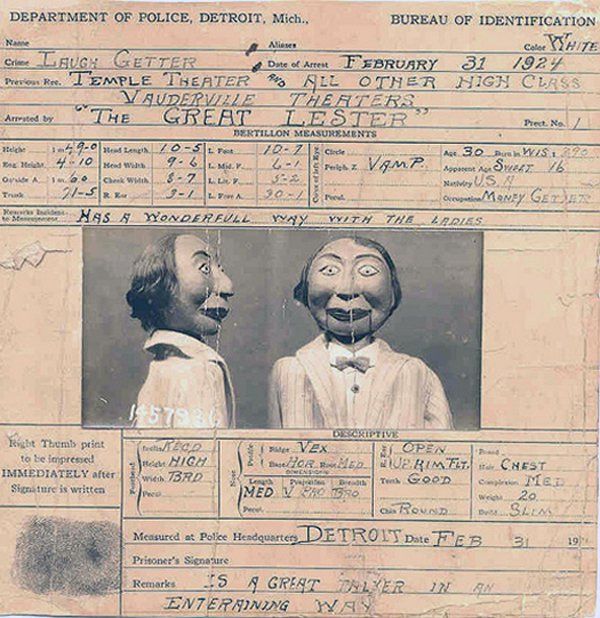 DEPARTMENT OF POLICE, DETROIT, Mich., BUREAU OF IDENTIFICATION
Name Aliases Color WHITE
Crime LAUGH GETTER Date of Arrest FEBRUARY 31 1924
Previous Rec. TEMPLE THEATER AND ALL OTHER HIGH CLASS
VAUDERVILLE THEATERS
Arrested by "THE GREAT LESTER" Prect. No. 1
BERTILLON MEASUREMENTS
Height 1 m 49-0 Head Length 10-5 L. Foot 10-7 Circle Age 30 Born in WIS.
Eng. Height 4-10 Head Width 9-6 L. Mid. F. 6-1 Periph. Z. VAMP. Apparent Age SWEET 16
Outside A. 1 m 60 Cheek Width 8-7 L. Lit. F. 5-2 Nativity U.S.A
Trunk 71-5 R. Ear 3-1 L. Fore A. 30-1 Pecul. Occupation MONEY GETTER
Remarks Incident to Measurement HAS A WONDERFULL WAY WITH THE LADIES
DESCRIPTIVE
Right Thumb print
to be impressed
IMMEDIATELY after
Signature is written
Forehead Inclin. RECD Ridge VEX OPEN Beard
Height HIGH Base HOR Root MED UP. RIM FLT. Hair CHEST
DIMENSIONS
Width BRD Length Projection Breadth Teeth GOOD Complexion MED
Pecul. MED V PRO BRO Weight 20
Pecul. Chin ROUND Build SLIM
Measured at Police Headquarters DETROIT Date FEB 31 19
Prisoner's Signature
Remarks IS A GREAT TALKER IN AN
ENTERAINING WAY